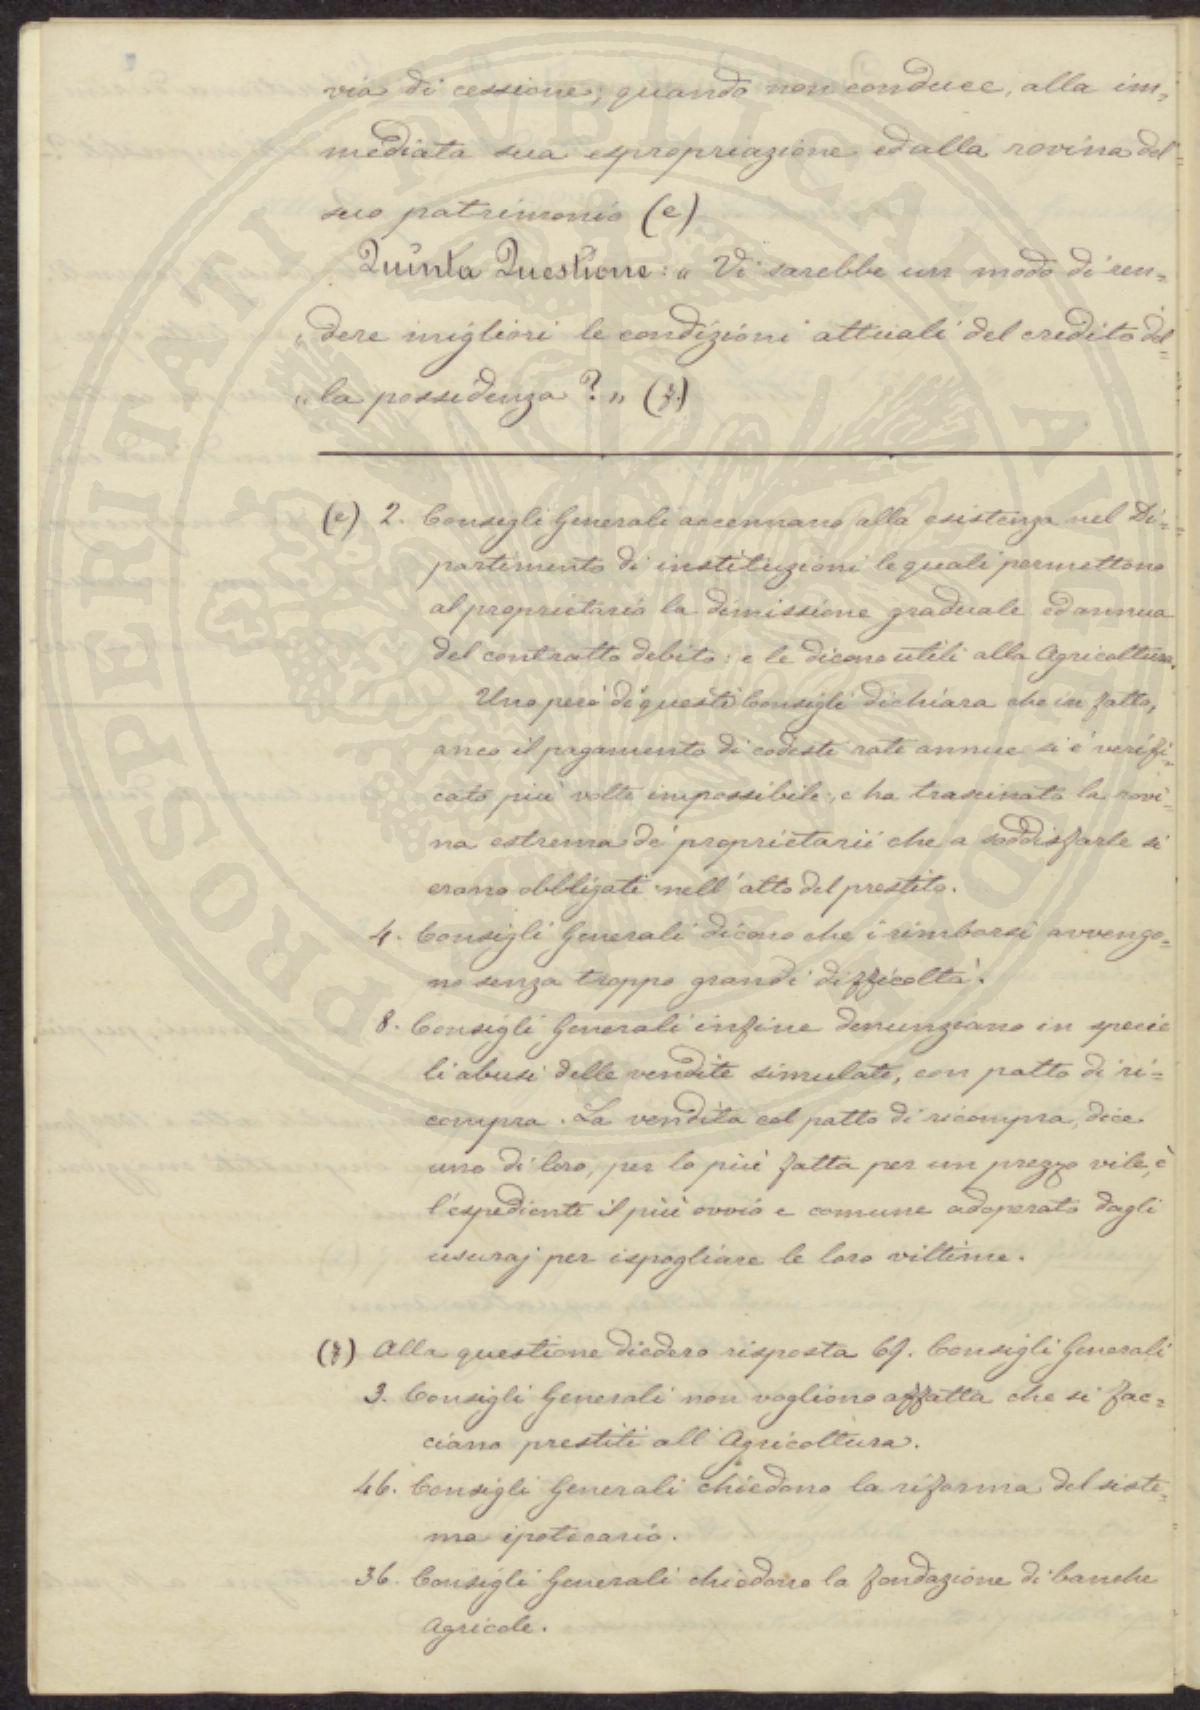 via di cessione, quando non conduce, alla im=
mediata sua espropriazione ed alla rovina del
suo patrimonio (e)
Quinta Questione: „ Vi sarebbe un modo di ren=
„ dere migliori le condizioni attuali del credito del=
„ la possidenza? „ (f)
(e) 2. Consigli Generali accennano alla esistenza nel Di=
partimento di instituzioni le quali permettono
al proprietario la dimissione graduale ed annua
del contratto debito: e le dicono utili alla Agricoltura.
Uno però di questi Consigli dichiara che in fatto,
anco il pagamento di codeste rate annue si è verifi=
cato più volte impossibile, e ha trascinato la rovi=
na estrema de' proprietarii che a soddisfarle si
erano obbligati nell'atto del prestito.
4. Consigli Generali dicono che i rimborsi avvengo=
no senza troppo grandi difficoltà.
8. Consigli Generali infine denunziano in specie
li abusi delle vendite simulate, con patto di ri=
compra. La vendita col patto di ricompra, dice
uno di loro, per lo più fatta per un prezzo vile, è
l'espediente il più ovvio e comune adoperato dagli
usuraj per ispogliare le loro vittime.
(f) Alla questione diedero risposta 69. Consigli Generali
3. Consigli Generali non vogliono affatta che si fac=
ciano prestiti all'Agricoltura.
46. Consigli Generali chiedono la riforma del siste=
ma ipotecario.
36. Consigli Generali chiedono la fondazione di banche
Agricole.
PROSPERITATI PUBLICAE AUGENDAE